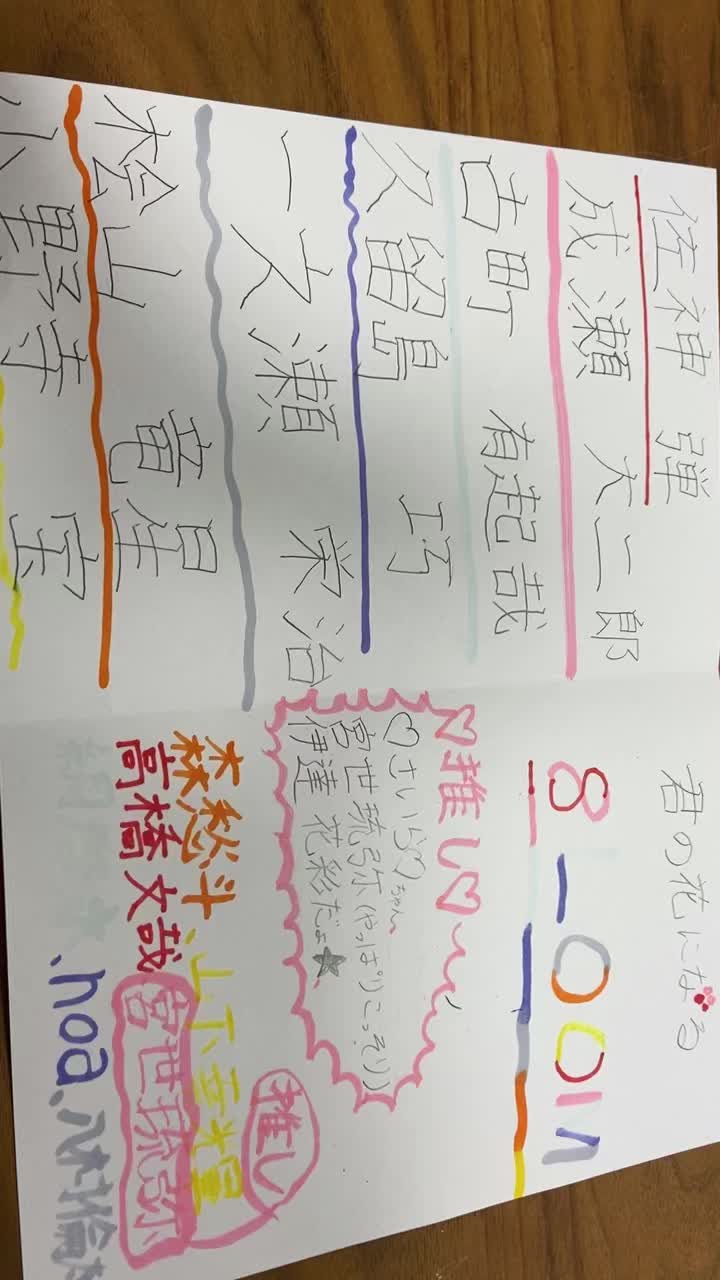 佐神 弾
成瀬 大二郎
古町 有起哉
久留島 巧
一文瀬 栄治
桧山 竜星
小野寺 宝
君の花になる
8LOOM
♡推し♡
♡さいら♡ちゃん
宮世琉弥(やっぱりこっそり)
伊達 花彩だよ★
推し
森愁斗 山下幸輝
高橋文哉 宮世琉弥
.hoa.八村倫